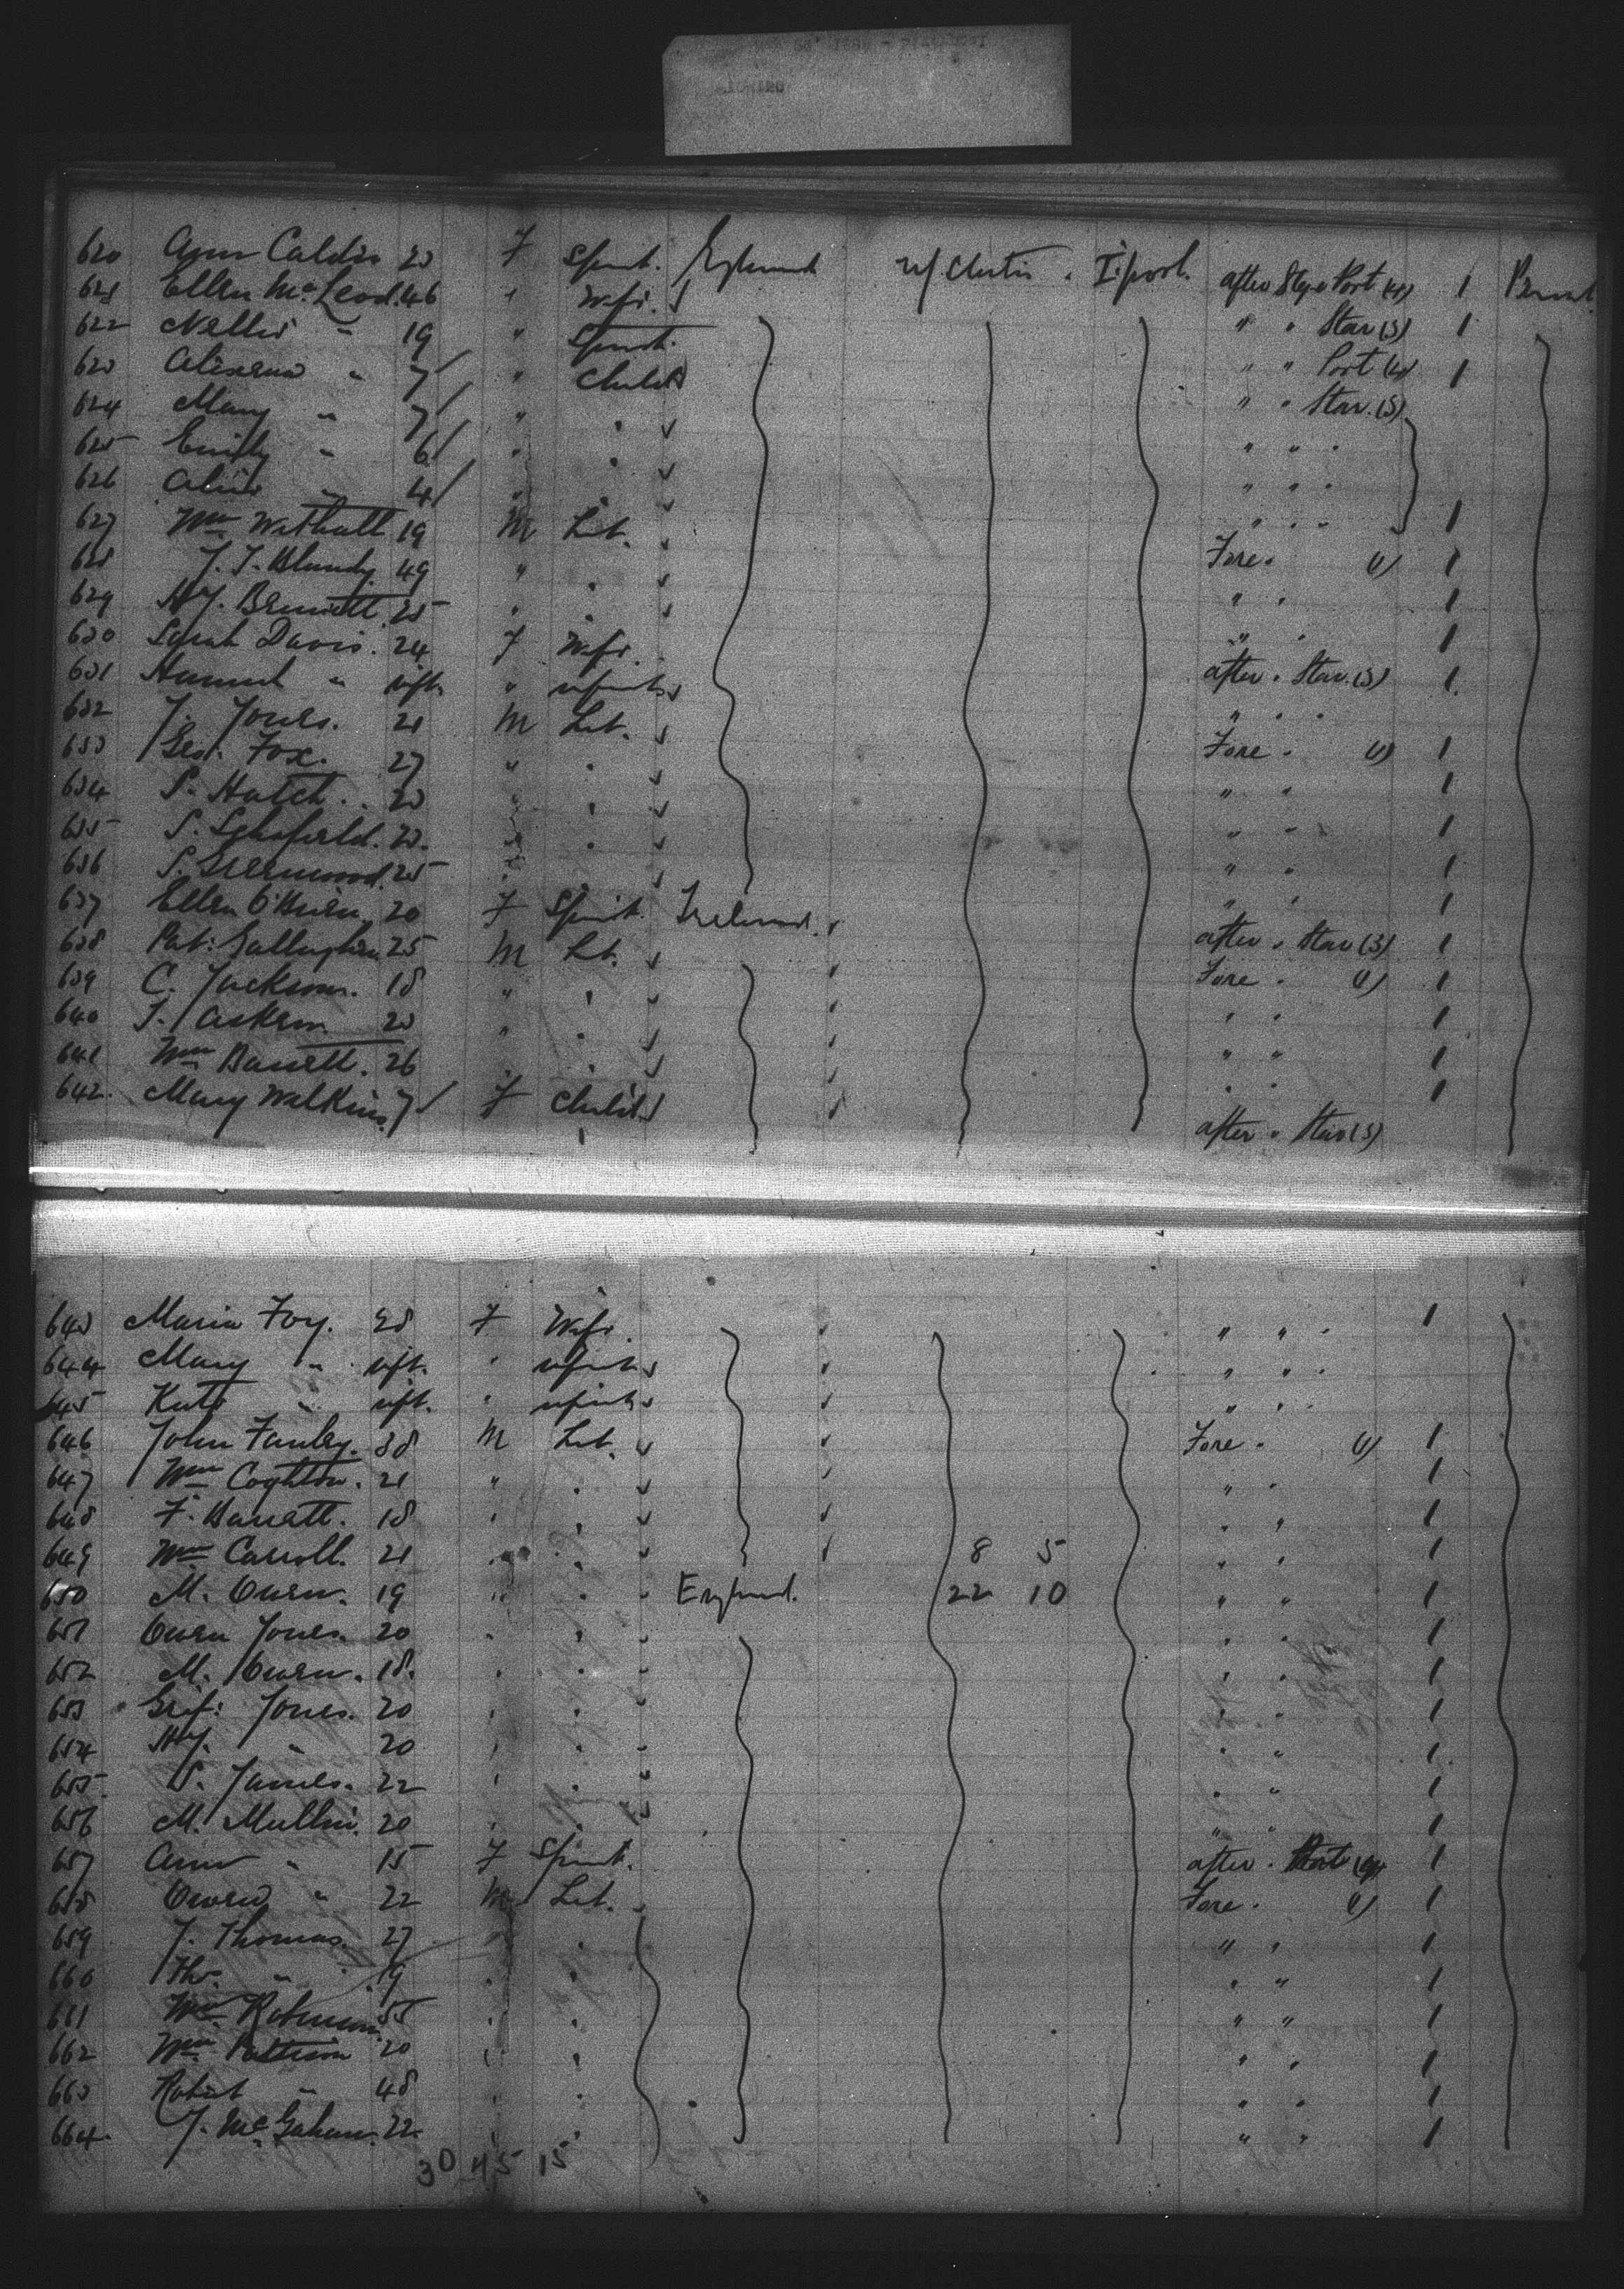 620 Ann Caldir 20 F Spinst. England U/States. L'pool. after Stge Port (4) 1 Permt.
621 Ellen McLeod. 46 " Wife. " " Star (3) 1
622 Nellie " 19 " Spinst. " " Port (4) 1
623 " 7 " Child " " Star. (3)
624 Mary " 7 " " " " "
625 Emily " 6 " " " " "
626 Alice " 4 " " " " " 1
627 Wm Withall 19 M Lab. Fore. (1) 1
628 J. J. Blundy 49 " " " " 1
629 Hy. Bennett. 25 " " " " 1
630 Sarah Davis. 24 F Wife. after " Star. (3) 1
631 Hannah " inft. " infant " " "
632 J. Jones. 21 M Lab. Fore " (1) 1
633 Geo. Fox. 27 " " " " 1
634 S. Hatch. 20 " " " " 1
635 S. Schofield. 20. " " " " 1
636 S. Greenwood. 25 " " " " 1
637 Ellen O'Brien 20 F Spinst. Ireland. after " Star (3) 1
638 Pat: Gallagher 25 M Lab. Fore " (1) 1
639 C. Jackson. 18 " " " " 1
640 J. Askem 20 " " " " 1
641 Wm Barrett. 26 " " " " 1
642. Mary Walkins. 7 F Child after " Star (3)
643 Maria Foy. 28 F Wife. " " " 1
644 Mary " inft. " infant " " "
645 Kate " inft. " infant " " "
646 John Fanley. 38 M Lab. Fore " (1) 1
647 Wm Coghlan. 21 " " " " 1
648 F. Barratt. 18 " " " " 1
649 Wm Carroll. 21 " " 8 5 " " 1
650 M. Owen. 19 " " England. 22 10 " " 1
651 Owen Jones. 20 " " " " 1
652 M. Owen. 18. " " " " 1
653 Grif: Jones. 20 " " " " 1
654 Hy. " 20 " " " " 1
655 S. James. 22 " " " " 1
656 M. Mullin. 20 " " " " 1
657 Ann " 15 F Spinst. after " Port (4) 1
658 Owen " 22 M Lab. Fore " (1) 1
659 J. Thomas. 27 " " " " 1
660 Tho. " 19 " " " " 1
661 Wm. Robinson. 55 " " " " 1
662 Wm. Pattison 20 " " " " 1
663 Robert " 48 " " " " 1
664. J. McGahan. 22. " " " " 1
30 45 15